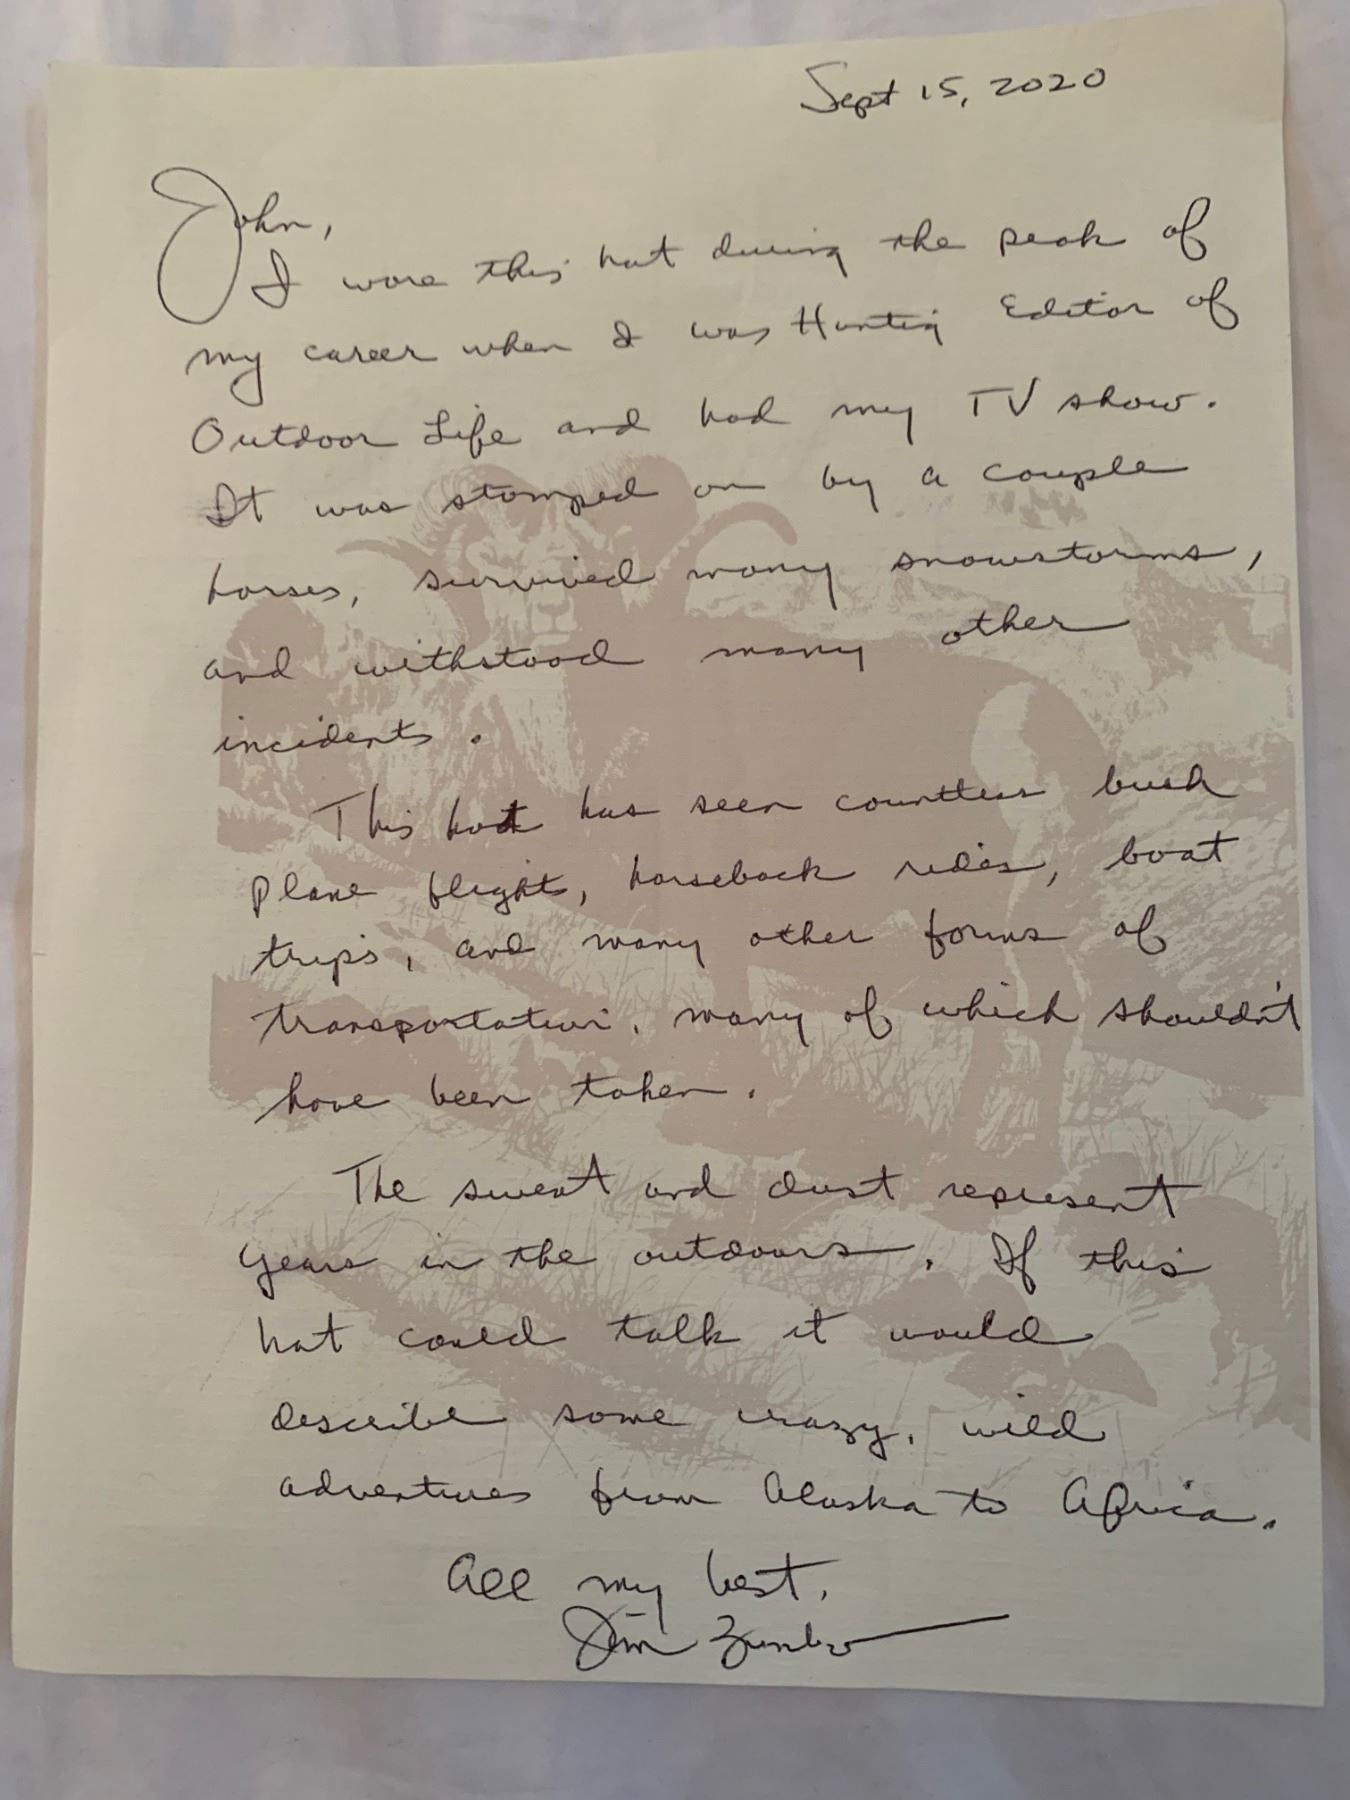 Sept 15, 2020
John,
I wore this hat during the peak of
my career when I was Hunting Editor of
Outdoor Life and had my TV show.
It was stomped on by a couple
horses, survived many snowstorms,
and withstood many other
incidents.
This hat has seen countless bush
plane flights, horseback rides, boat
trips, and many other forms of
transportation, many of which shouldn't
have been taken.
The sweat and dust represent
years in the outdoors. If this
hat could talk it would
describe some crazy, wild
adventures from Alaska to Africa.
All my best,
Jim Zumbo